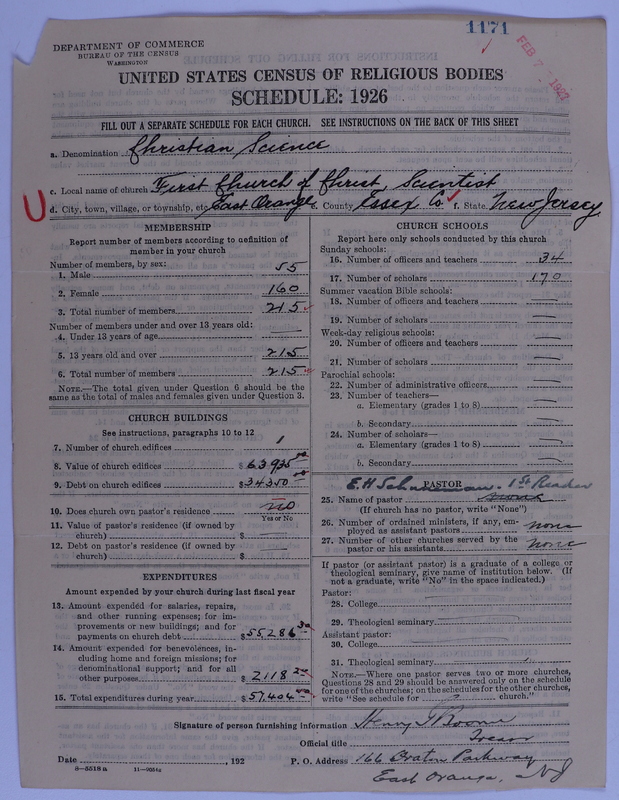 1171
FEB 7 1927
DEPARTMENT OF COMMERCE
BUREAU OF THE CENSUS
WASHINGTON
UNITED STATES CENSUS OF RELIGIOUS BODIES
SCHEDULE: 1926
FILL OUT A SEPARATE SCHEDULE FOR EACH CHURCH. SEE INSTRUCTIONS ON THE BACK OF THIS SHEET
a. Denomination Christian Science
c. Local name of church First Church of Christ Scientist
U d. City, town, village, or township, etc East Orange e. County Essex Co f. State New Jersey
MEMBERSHIP
Report number of members according to definition of
member in your church
Number of members, by sex:
1. Male 55
2. Female 160
3. Total number of members 215
Number of members under and over 13 years old:
4. Under 13 years of age —
5. 13 years old and over 215
6. Total number of members 215
NOTE.—The total given under Question 6 should be the
same as the total of males and females given under Question 3.
CHURCH BUILDINGS
See instructions, paragraphs 10 to 12
7. Number of church edifices 1
8. Value of church edifices $63935 00
9. Debt on church edifices $34350 00
10. Does church own pastor's residence no
Yes or No
11. Value of pastor's residence (if owned by
church) $ —
12. Debt on pastor's residence (if owned by
church) $ —
EXPENDITURES
Amount expended by your church during last fiscal year
13. Amount expended for salaries, repairs,
and other running expenses; for im-
provements or new buildings; and for
payments on church debt $55,286
14. Amount expended for benevolences, in-
cluding home and foreign missions; for
denominational support; and for all
other purposes $2118
15. Total expenditures during year $57,404
CHURCH SCHOOLS
Report here only schools conducted by this church
Sunday schools:
16. Number of officers and teachers 34
17. Number of scholars 170
Summer vacation Bible schools:
18. Number of officers and teachers —
19. Number of scholars —
Week-day religious schools:
20. Number of officers and teachers —
21. Number of scholars —
Parochial schools:
22. Number of administrative officers —
23. Number of teachers—
a. Elementary (grades 1 to 8) —
b. Secondary —
24. Number of scholars—
a. Elementary (grades 1 to 8) —
b. Secondary —
PASTOR
E. H. 1st Reader
25. Name of pastor
(If church has no pastor, write "None")
26. Number of ordained ministers, if any, em-
ployed as assistant pastors none
27. Number of other churches served by the
pastor or his assistants none
If pastor (or assistant pastor) is a graduate of a college or
theological seminary, give name of institution below. (If
not a graduate, write "No" in the space indicated.)
Pastor:
28. College
29. Theological seminary
Assistant pastor:
30. College
31. Theological seminary
NOTE.—Where one pastor serves two or more churches,
Questions 28 and 29 should be answered only on the schedule
for one of the churches; on the schedules for the other churches,
write "See schedule for church."
Signature of person furnishing information Henry J Boone
Official title Treasr
Date , 192 P. O. Address 166 Eraton Parkway
8—5518a 11—9034a East Orange, NJ